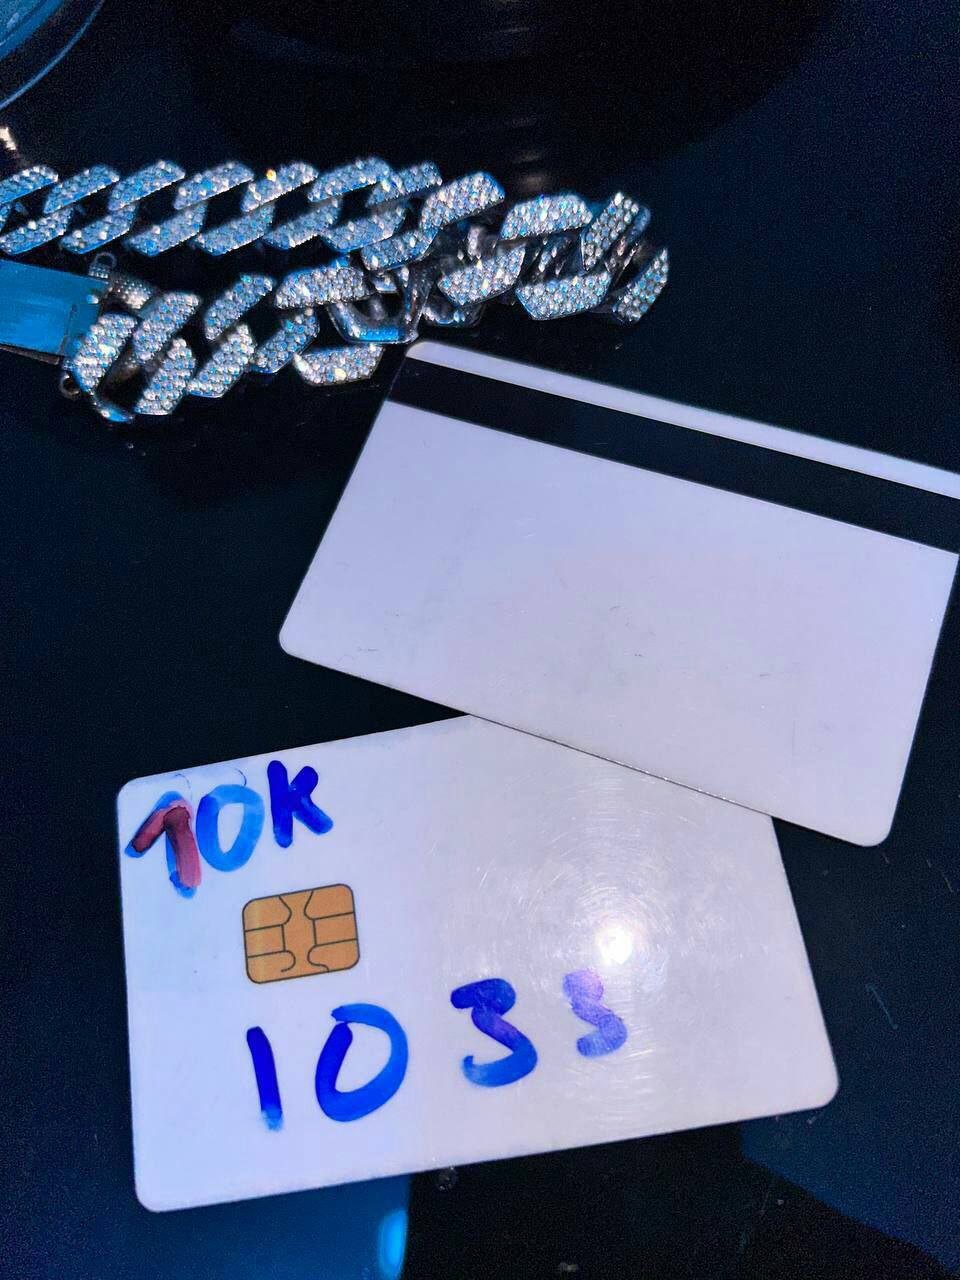 10K
1033